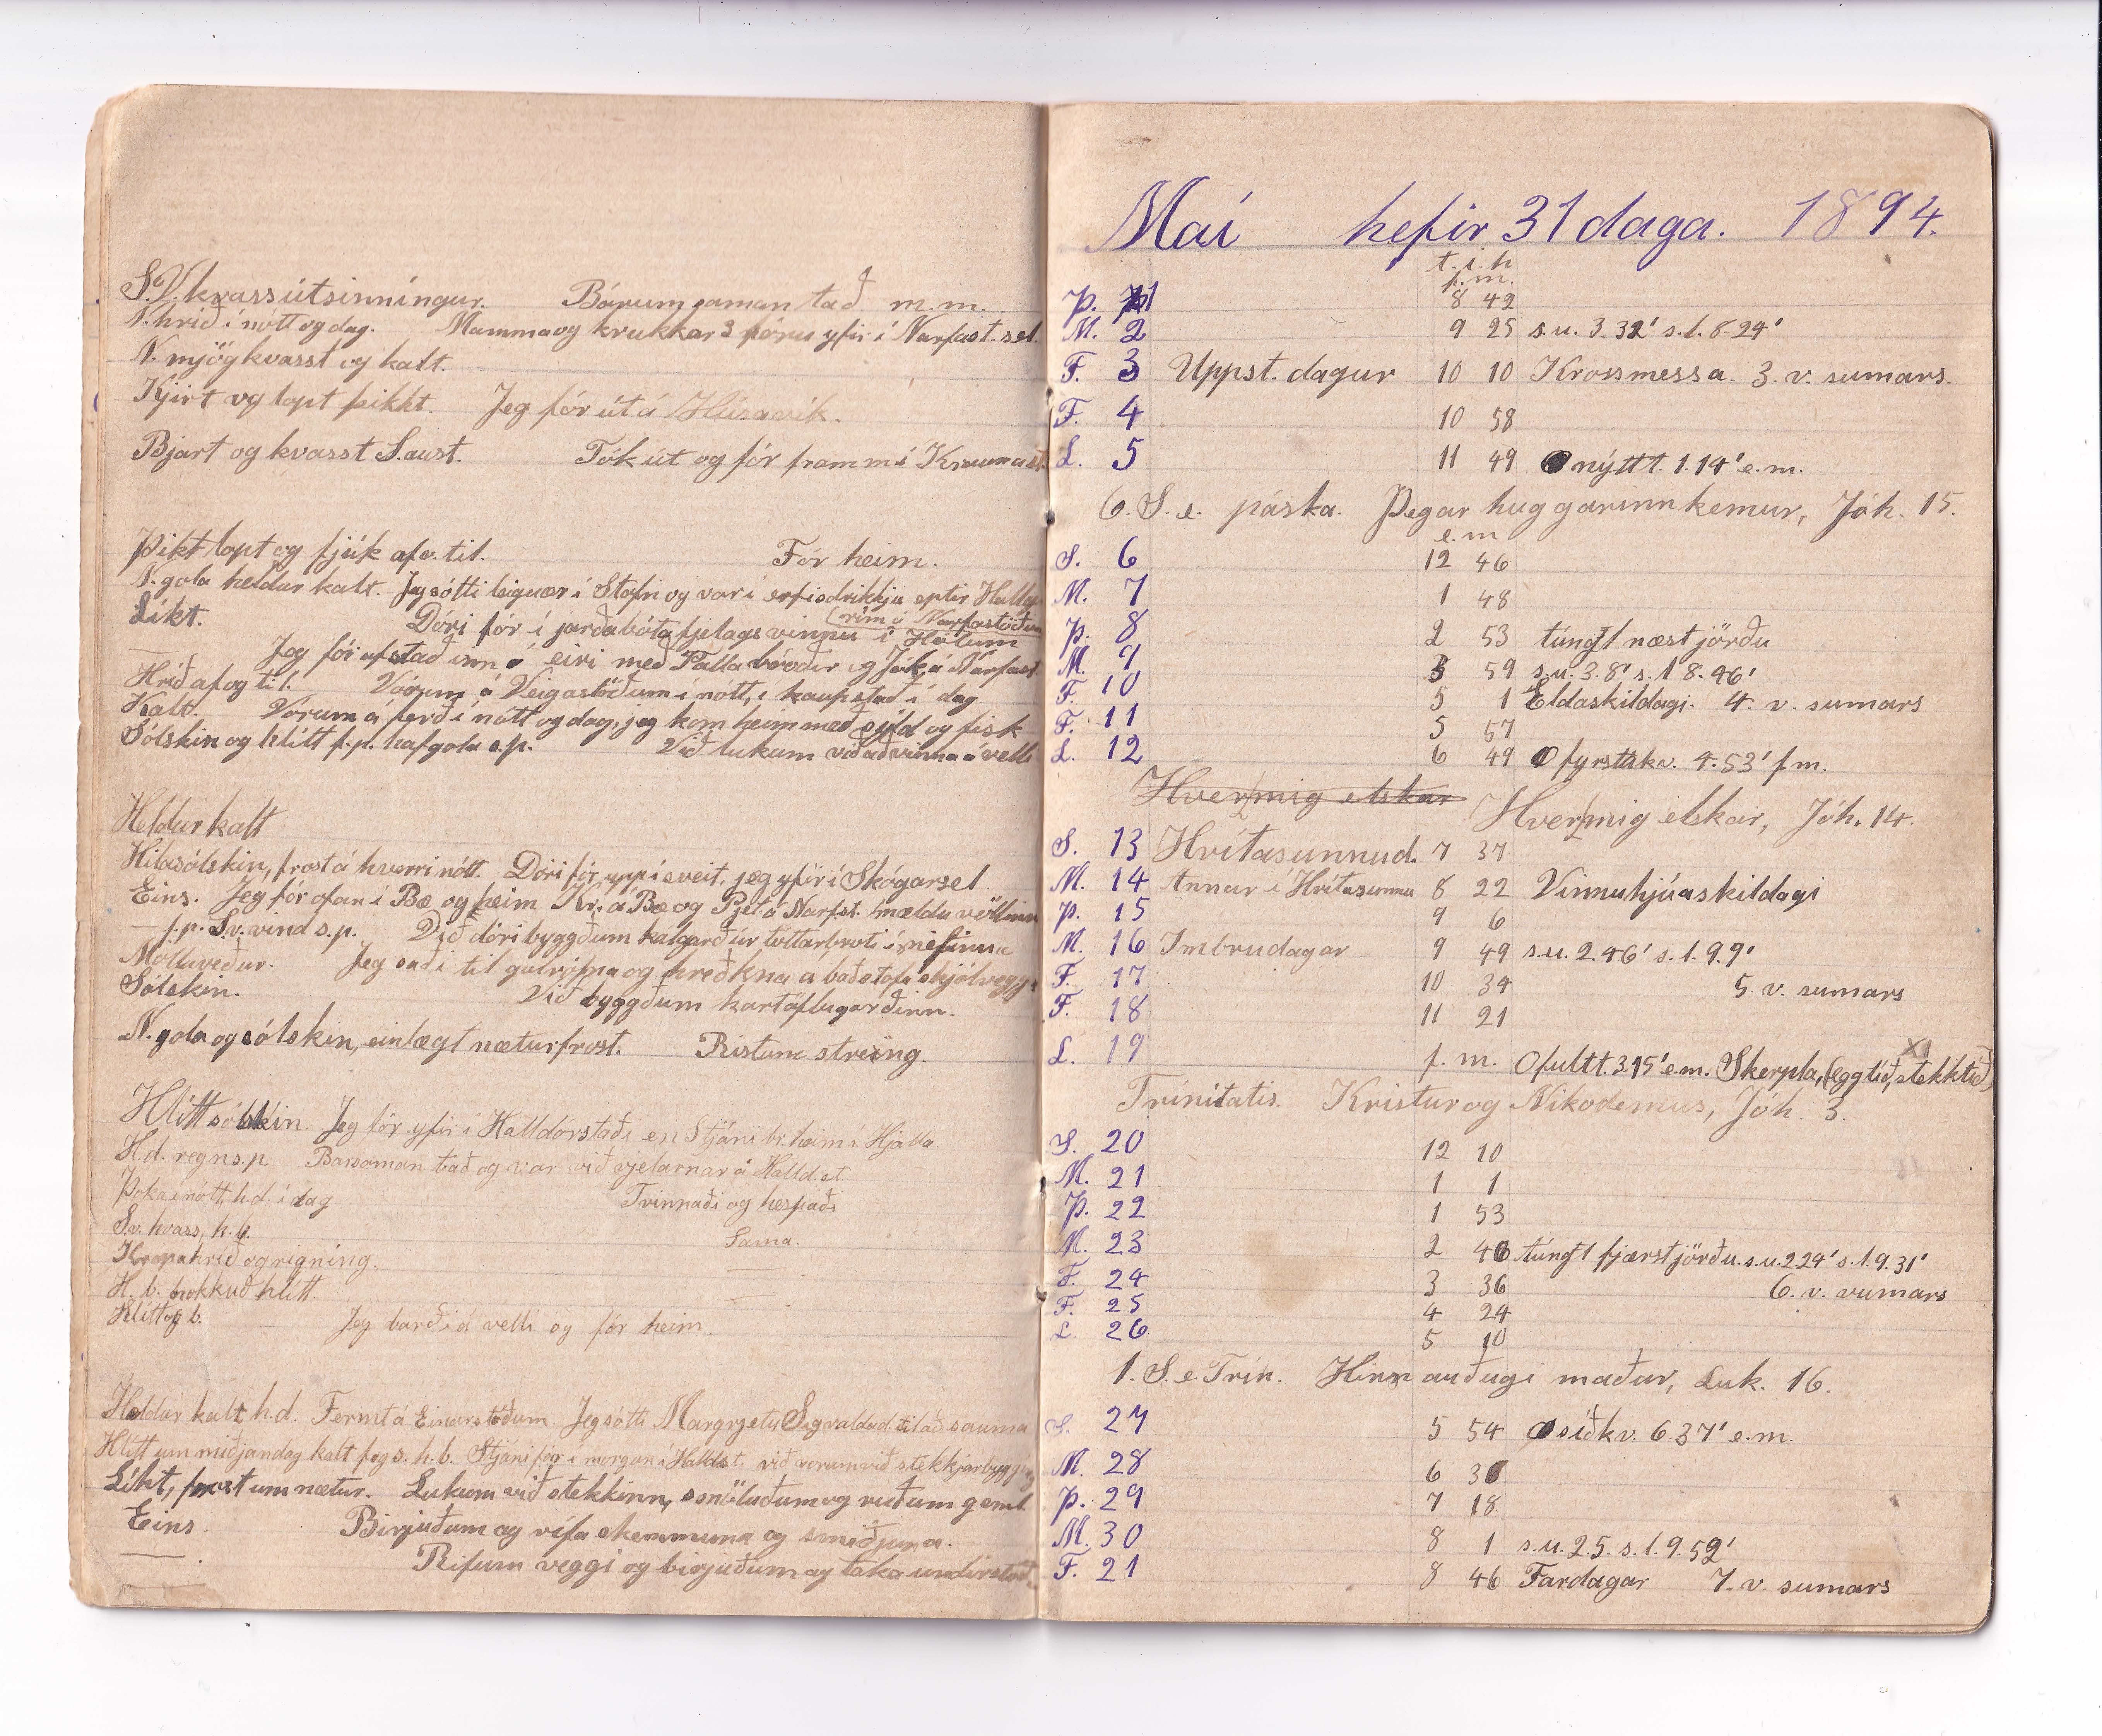 S.V. kvass útsinníngur. Bárum saman tað m.m.
N. hríð í nótt og dag. Mamma og krakkar 3 fóru yfir í Narfast.sel.
N. mjög kvasst og kalt.
Kjirt og lopt þikkt. Jeg fór út á Húsavík.
Bjart og kvasst S.aust. Tók út og fór fram mí
Þikt lopt og fjúk af o. til. Fór heim.
N. gola heldur kalt. Jeg sótti leiguær í Stafn og var í erfisdrikkju eptir
Líkt. Dóri fór í jarðabótafjelagsvinnu í Hólum
(rím á Narfastöðum
— Jeg fór af stað inn á eiri með Palla bróðir og Jak. á Narfast.
Hríð af og til. Vórum á Veigastöðum í nótt, í kaupstað í dag
Kalt. Vórum á ferð í nótt og dag, jeg kom heim með síld og fisk
Sólskin og hlítt f.p. hafgola s.p. Við lukum við að vinna á velli
Heldur kalt
Hitasólskin, frost á hverri nótt. Dóri fór upp í sveit, jeg yfir í Skógarsel.
Eins. Jeg fór ofan í Bæ og heim Kr. á Bæ og Pjet. á Narfst. mældu völlinn
— f.p. S.v. vind s.p. Við dóri byggðum kalgarð úr tóttarbroti í nefinu
Molluveður. Jeg sáði til gulrófna og hreðkna á baðstofu skjólvegg
Sólskin. Við byggðum kartöflugarðinn.
N. gola og sólskin, einlægt næturfrost. Ristum streing.
Hlítt sólskin. Jeg fór yfir í Halldórstaði en Stjáni br. heim í Hjalla
H.d. regn s.p. Bar saman tað og var við vjelarnar á Halld.st
Þoka í nótt, h.d. í dag Tvinnaði og hespaði
S.v. hvass, h.b. Sama.
Krapahríð og rigning. —
H. b. nokkuð hlítt. —
Hlítt og b. Jeg barði á velli og fór heim.
Heldur kalt h.d. Fermt á Einarstöðum. Jeg sótti Margrjetu Sigvaldad. til að sauma
Hlítt um miðjan dag kalt s. h.b. Stjáni fór í morgun í Halldst. við vorum við stekkjarbygging
Líkt, frost um nætur. Lukum við stekkinn, smöluðum og rúðum geml.
Eins. Birjuðum ag rífa skemmuna og smiðjuna.
— Rifum veggi og birjuðum ag taka undirstöð
Maí hefir 31 daga. 1894.
t. í. h
f.m.
Þ. 1 8 42
M. 2 9 25 s.u. 3.32' s.l. 8.24'
F. 3 Uppst. dagur 10 10 Krossmessa. 3. v. sumars.
F. 4 10 58
L. 5 11 49 nýtt t. 1.14' e.m.
6. S. e. páska. Þegar huggarinn kemur, Jóh. 15.
e.m
S. 6 12 46
M. 7 1 48
Þ. 8 2 53 túngl næst jörðu
M. 9 3 59 s.u. 3.8' s.l 8.46'
F. 10 5 1 Eldaskildagi. 4. v. sumars
F. 11 5 57
L. 12 6 49 fyrsta kv. 4.53' f m.
Hver mig elskar Hver mig elskar, Jóh. 14.
S. 13 Hvítasunnud. 7 37
M. 14 Annar í Hvítasunnu 8 22 Vinnuhjúaskildagi
Þ. 15 9 6
M. 16 Imbrudagar 9 49 s.u. 2.46' s.l. 9.9'
F. 17 10 34 5. v. sumars
F. 18 11 21
XI
L. 19 f. m. fullt t. 3.45' e.m. Skerpla, (eggtíð, stekktíð)
Trínitatis. Kristur og Nikodemus, Jóh. 3.
S. 20 12 10
M. 21 1 1
Þ. 22 1 53
M. 23 2 46 túngl fjærst jörðu. s.u. 2 24' s.l. 9.31'
F. 24 3 36 6. v. vumars
F. 25 4 24
L. 26 5 10
1. S. e. Trín. Hinn auðugi maður, Luk. 16.
S. 27 5 54 síð kv. 6 37' e.m.
M. 28 6 36
Þ. 29 7 18
M. 30 8 1 s.u. 2.5. s.l. 9.52'
F. 21 8 46 Fardagar 7. v. sumars